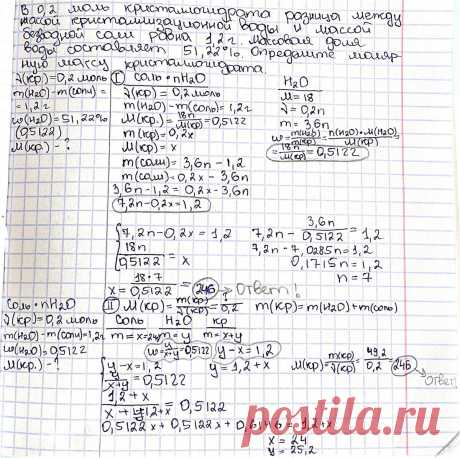 В 0,2 моль кристаллогидрата разница между
массой кристаллизационной воды и массой
безводной соли равна 1,2г. Массовая доля
воды составляет 51,22%. Определите моляр-
ную массу кристаллогидрата.
ν(кр)=0,2 моль
m(H2O)-m(соли)=
=1,2г
w(H2O)=51,22%
(0,5122)
M(кр)-?
I Соль•nH2O
ν(кр)=0,2 моль
m(H2O)-m(соль)=1,2г
M(кр.)=18n/M(кр)=0,5122
m(кр)=0,2x
M(кр)=x
m(соли)=3,6n-1,2
m(соли)=0,2x-3,6n
3,6n-1,2=0,2x-3,6n
7,2n-0,2x=1,2
H2O
M=18
ν=0,2n
m=3,6n
w=m(H2O)/m(кр)=n(H2O)•M(H2O)/M(кр)=
=18n/M(кр)=0,5122
7,2n-0,2x=1,2
18n/0,5122=x
x=18•7/0,5122=246 → Ответ!
7,2n-3,6n/0,5122=1,2
7,2n-7,0285n=1,2
0,1715n=1,2
n=7
Соль•nH2O
ν(кр)=0,2 моль
m(H2O)-m(соли)=1,2г
w(H2O)=0,5122
M(кр.)-?
II M(кр)=m(кр)/ν(кр)=?/0,2 m(кр)=m(H2O)+m(соль)
Соль H2O кр
m=x m=y m=x+y
w=y/x+y=0,5122 y-x=1,2
y-x=1,2
y/x+y=0,5122
y=1,2+x
M(кр)=m(кр)/ν(кр)=49,2/0,2=246 → Ответ!
1,2+x/x+1,2+x=0,5122
0,5122x+0,5122x+0,6146=1,2+x
x=24
y=25,2